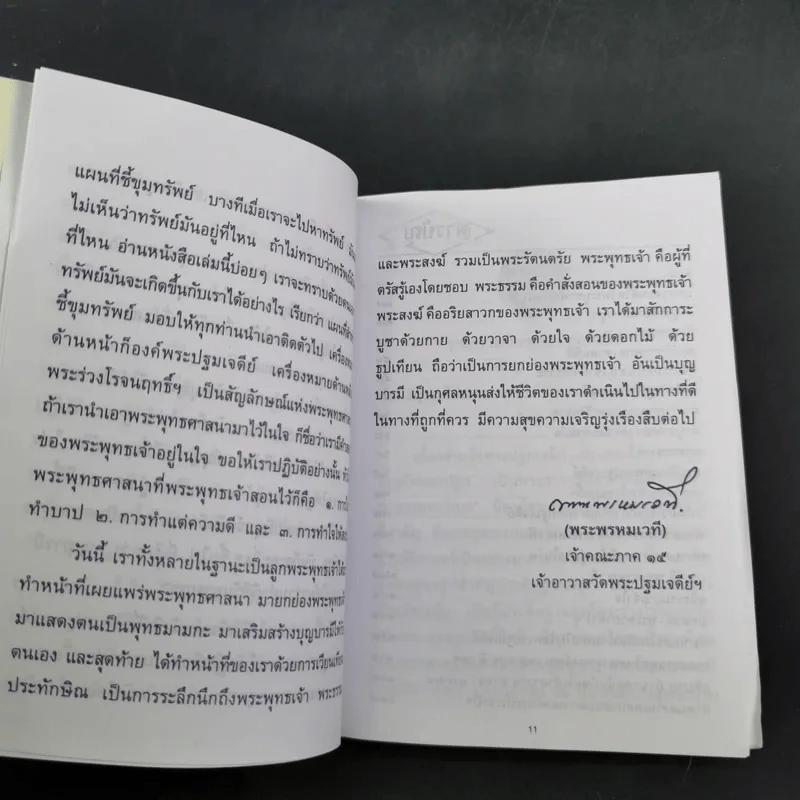 แผนที่ชี้ขุมทรัพย์ บางทีเมื่อเราจะไปหาทรัพย์
ไม่เห็นว่าทรัพย์มันอยู่ที่ไหน ถ้าไม่ทราบว่าทรัพย์
ที่ไหน อ่านหนังสือเล่มนี้บ่อยๆ เราจะทราบด้วย
ทรัพย์มันจะเกิดขึ้นกับเราได้อย่างไร เรียกว่า แผนที่
ชี้ขุมทรัพย์ มอบให้ทุกท่านนำเอาติดตัวไป
ด้านหน้าก็องค์พระปฐมเจดีย์ เครื่องหมายด้าน
พระร่วงโรจนฤทธิ์ฯ เป็นสัญลักษณ์แห่งพระพุทธ
ถ้าเรานำเอาพระพุทธศาสนามาไว้ในใจ ก็ชื่อว่าเรามี
ของพระพุทธเจ้าอยู่ในใจ ขอให้เราปฏิบัติอย่างนั้น
พระพุทธศาสนาที่พระพุทธเจ้าสอนไว้ก็คือ ๑.
ทำบาป ๒. การทำแต่ความดี และ ๓. การทำใจให้
วันนี้ เราทั้งหลายในฐานะเป็นลูกพระพุทธเจ้า
ทำหน้าที่เผยแพร่พระพุทธศาสนา มายกย่องพระพุทธ
มาแสดงตนเป็นพุทธมามกะ มาเสริมสร้างบุญบารมี
ตนเอง และสุดท้าย ได้ทำหน้าที่ของเราด้วยการเวียน
ประทักษิณ เป็นการระลึกนึกถึงพระพุทธเจ้า
และพระสงฆ์ รวมเป็นพระรัตนตรัย พระพุทธเจ้า คือผู้ที่
ตรัสรู้เองโดยชอบ พระธรรม คือคำสั่งสอนของพระพุทธเจ้า
พระสงฆ์ คืออริยสาวกของพระพุทธเจ้า เราได้มาสักการะ
บูชาด้วยกาย ด้วยวาจา ด้วยใจ ด้วยดอกไม้ ด้วย
ธูปเทียน ถือว่าเป็นการยกย่องพระพุทธเจ้า อันเป็นบุญ
บารมี เป็นกุศลหนุนส่งให้ชีวิตของเราดำเนินไปในทางที่ดี
ในทางที่ถูกที่ควร มีความสุขความเจริญรุ่งเรืองสืบต่อไป
(พระพรหมเวที)
เจ้าคณะภาค ๑๕
เจ้าอาวาสวัดพระปฐมเจดีย์ฯ
11